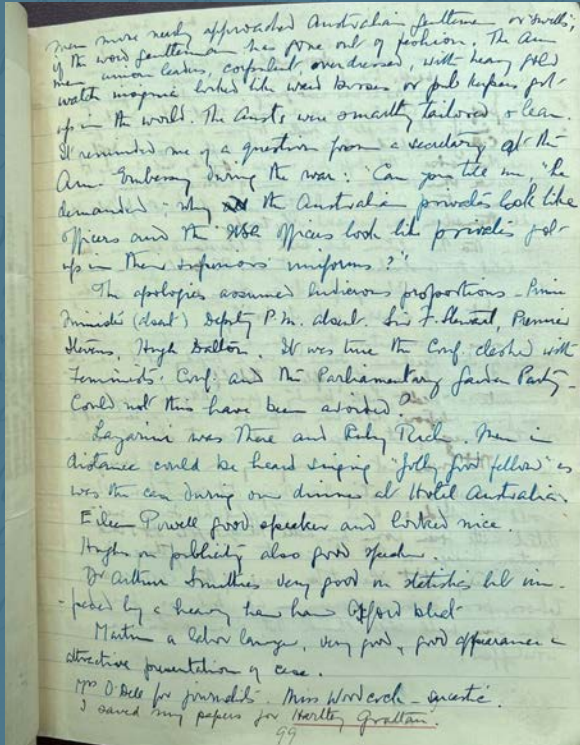 men more nearly approached Australian gentlemen or swells,
if the word gentleman has gone out of fashion. The Am
men union leaders, corpulent, overdressed, with heavy gold
watch insignia looked like ward bosses or pub keepers got-
up in the world. The Austs were smartly tailored & lean.
It reminded me of a question from a secretary at the
Am. Embassy during the war: "Can you tell me," he
demanded, "why the Australian privates look like
officers and the USA officers look like privates got-
up in their superiors' uniforms?"
The apologies assumed ludicrous proportions - Prime
Minister (absent) Deputy P.M. absent. Sir F. Stewart, Premier
Stevens, Hugh Dalton. It was true the Conf. clashed with
Feminists' Conf. and the Parliamentary Garden Party -
Could not this have been avoided?
Lazarini was there and Ruby Rich. Men in
distance could be heard singing "Jolly good fellow" as
was the case during our dinner at Hotel Australia.
Eileen Powell good speaker and looked nice.
Hughes on publicity also good speaker.
Dr Arthur Smithies very good on statistics but im-
-peded by a heavy haw haw Oxford
Martin a labor lawyer, very good, good appearance &
attractive presentation of case.
Mrs O'Dell for journalists. Miss Woodcock -
I saved my papers for Hartley Grattan.
99